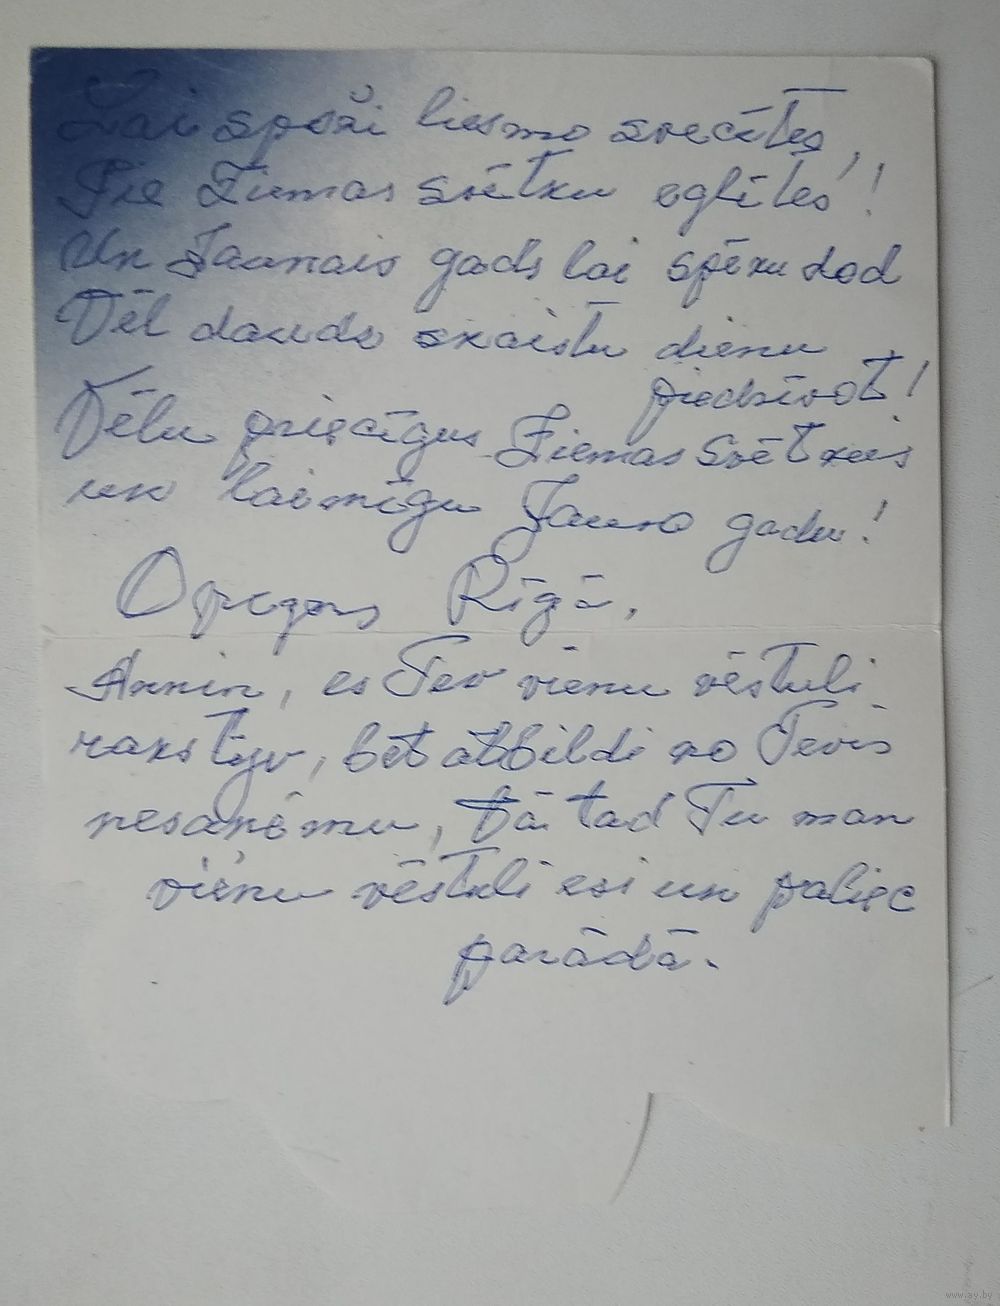 Lai spoži liesmo svecītes,
Pie Ziemas svētku eglītes!
Un Jaunais gads lai spēku dod
Vēl daudz skaistu dienu
piedzīvot!
Vēlu priecīgus Ziemas svētkus
un laimīgu Jauno gadu!
Rīgā,
Annin, es Tev vienu vēstuli
rakstīju, bet atbildi no Tevis
nesaņēmu, tā tad Tu man
vienu vēstuli esi un paliec
parādā.
www.ay.by